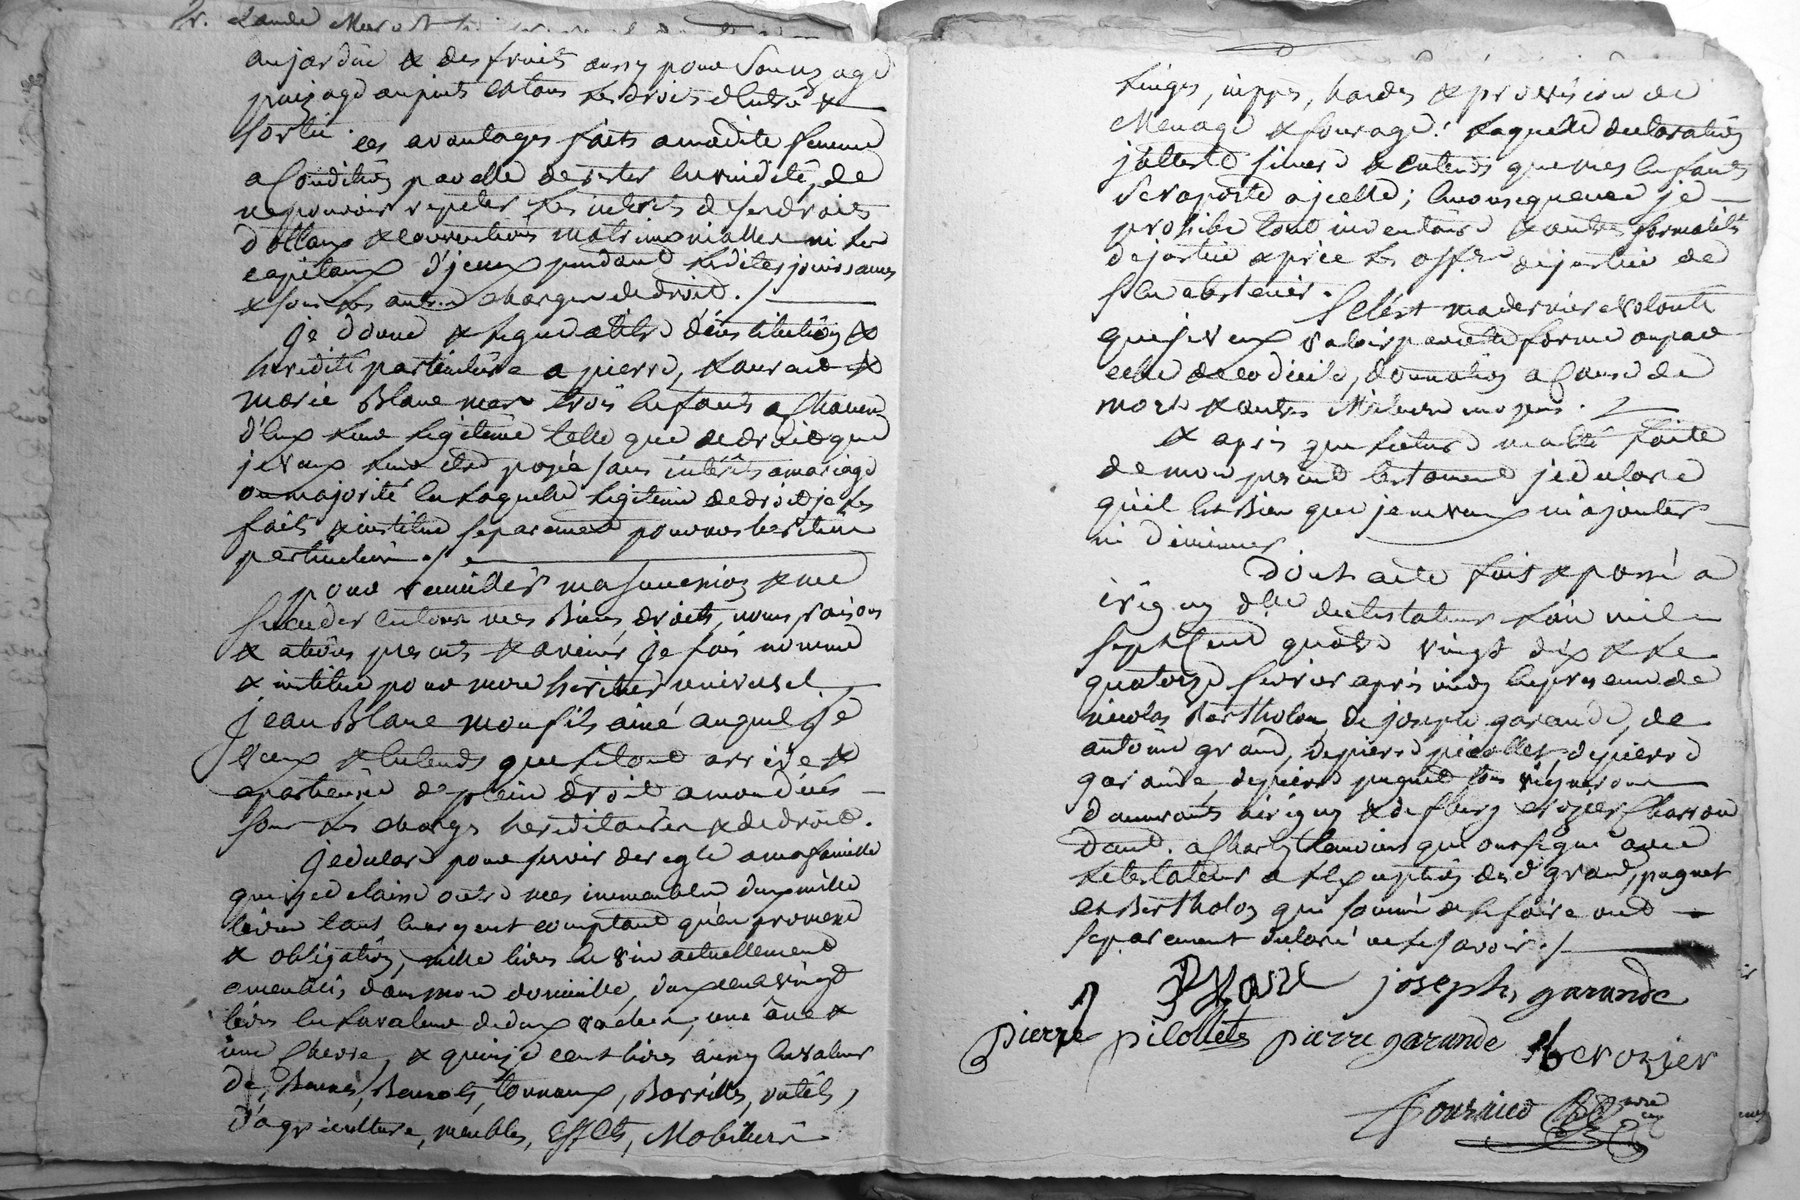 au jardin & des fruits aussy pour son uzage
puizage au puits et tous les droits d'entrée &
sortie. les avantages faits a madite femme
a Condition par elle de rester en viduité, de
ne pouvoir repeter les interets de ses droits
dottaux & conventions matrimonialles ni les
capitaux d'jceux pendant lesdites jouissances
& sous les autres charges de droit ./.
Je donne & legue a titre d'institution &
heredité particulière a pierre, &
marie Blanc mes trois enfants a Chacun
d'eux leur legitime telle que de droit que
je veux leur etre payée sans intérêts a mariage
ou majorité en laquelle legitime de droit je les
fais & institue separement pour mes heritiers
particuliers ./.
pour recueillir ma succession & me
succeder en tous mes Biens droits, noms, raisons
& actions presents & avenirs je fais nomme
& institue pour mon heritier universel
Jean Blanc mon fils ainé auquel je
veux & entends que le tout arrive &
apartienne de plein droit a mon décès
sous les charges hereditaires & de droit.
Je declare pour servir de regle a ma famille
que je delaisse outre mes immeubles deux mille
livres tant en argent comptant qu'en promesse
& obligation, mille livres en vin actuellement
dans mon domicille, deux cent vingt
livres en la valeur de deux vaches, une âne &
une chevre, & quinze cent livres aussy en valeur
de, Bennes, Bennots, tonneaux, Barrilles, outils,
d'agriculture, meubles, Effets, Mobiliers
Linges, nippes, hardes & provision de
Menage & fourage. Laquelle declaration
j'atteste sincere & entends que mes enfants
s'en raporte a jcelle; en consequence je
prohibe tout inventaire & autres formalités
de justice & prie les offers de justice de
s'en abstenir. Telle est ma derniere volonté
que je veux valoir par cette forme ou par
celle de codicile, donnation a Cause de
mort & autres Meilleurs moyens.
& apres que lecture m'a été faite
de mon present testament je declare
qu'il est Bien que je ne veux ni ajouter
ni diminuer
Dont acte fait & passé a
irigny dlle du testateur l'an mil
sept Cent quatre vingt dix & le
quatorze fevrier après midy en presence de
nicolas Bertholon de joseph garande, de
antoine grand, de pierre picollet, de pierre
garande, de pierre puguet tous vignerons
demeurants a irigny & de fleury erozier Charron
demt. a Charly temoins qui ont signé avec
le testateur a l'exception des d. grand, puguet
et Bertholon qui sommé de le faire ont
separement declaré ne le savoir ./.
joseph garande
pierre picollets pierre garande
erozier